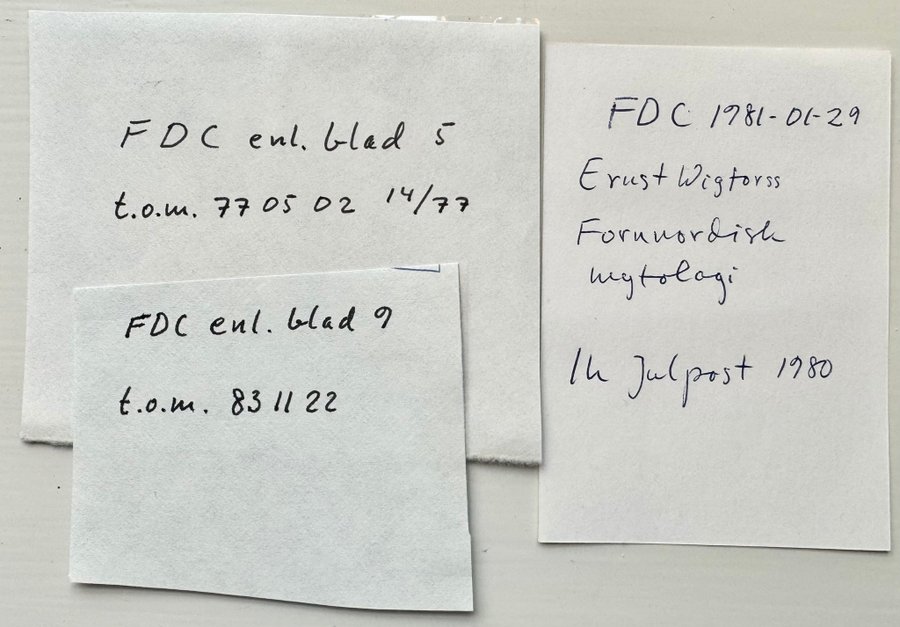 FDC enl. blad 5
t.o.m. 77 05 02 14/77
FDC enl. blad 9
t.o.m. 83 11 22
FDC 1981-01-29
Ernst Wigforss
Fornnordisk
mytologi
1h Julpost 1980